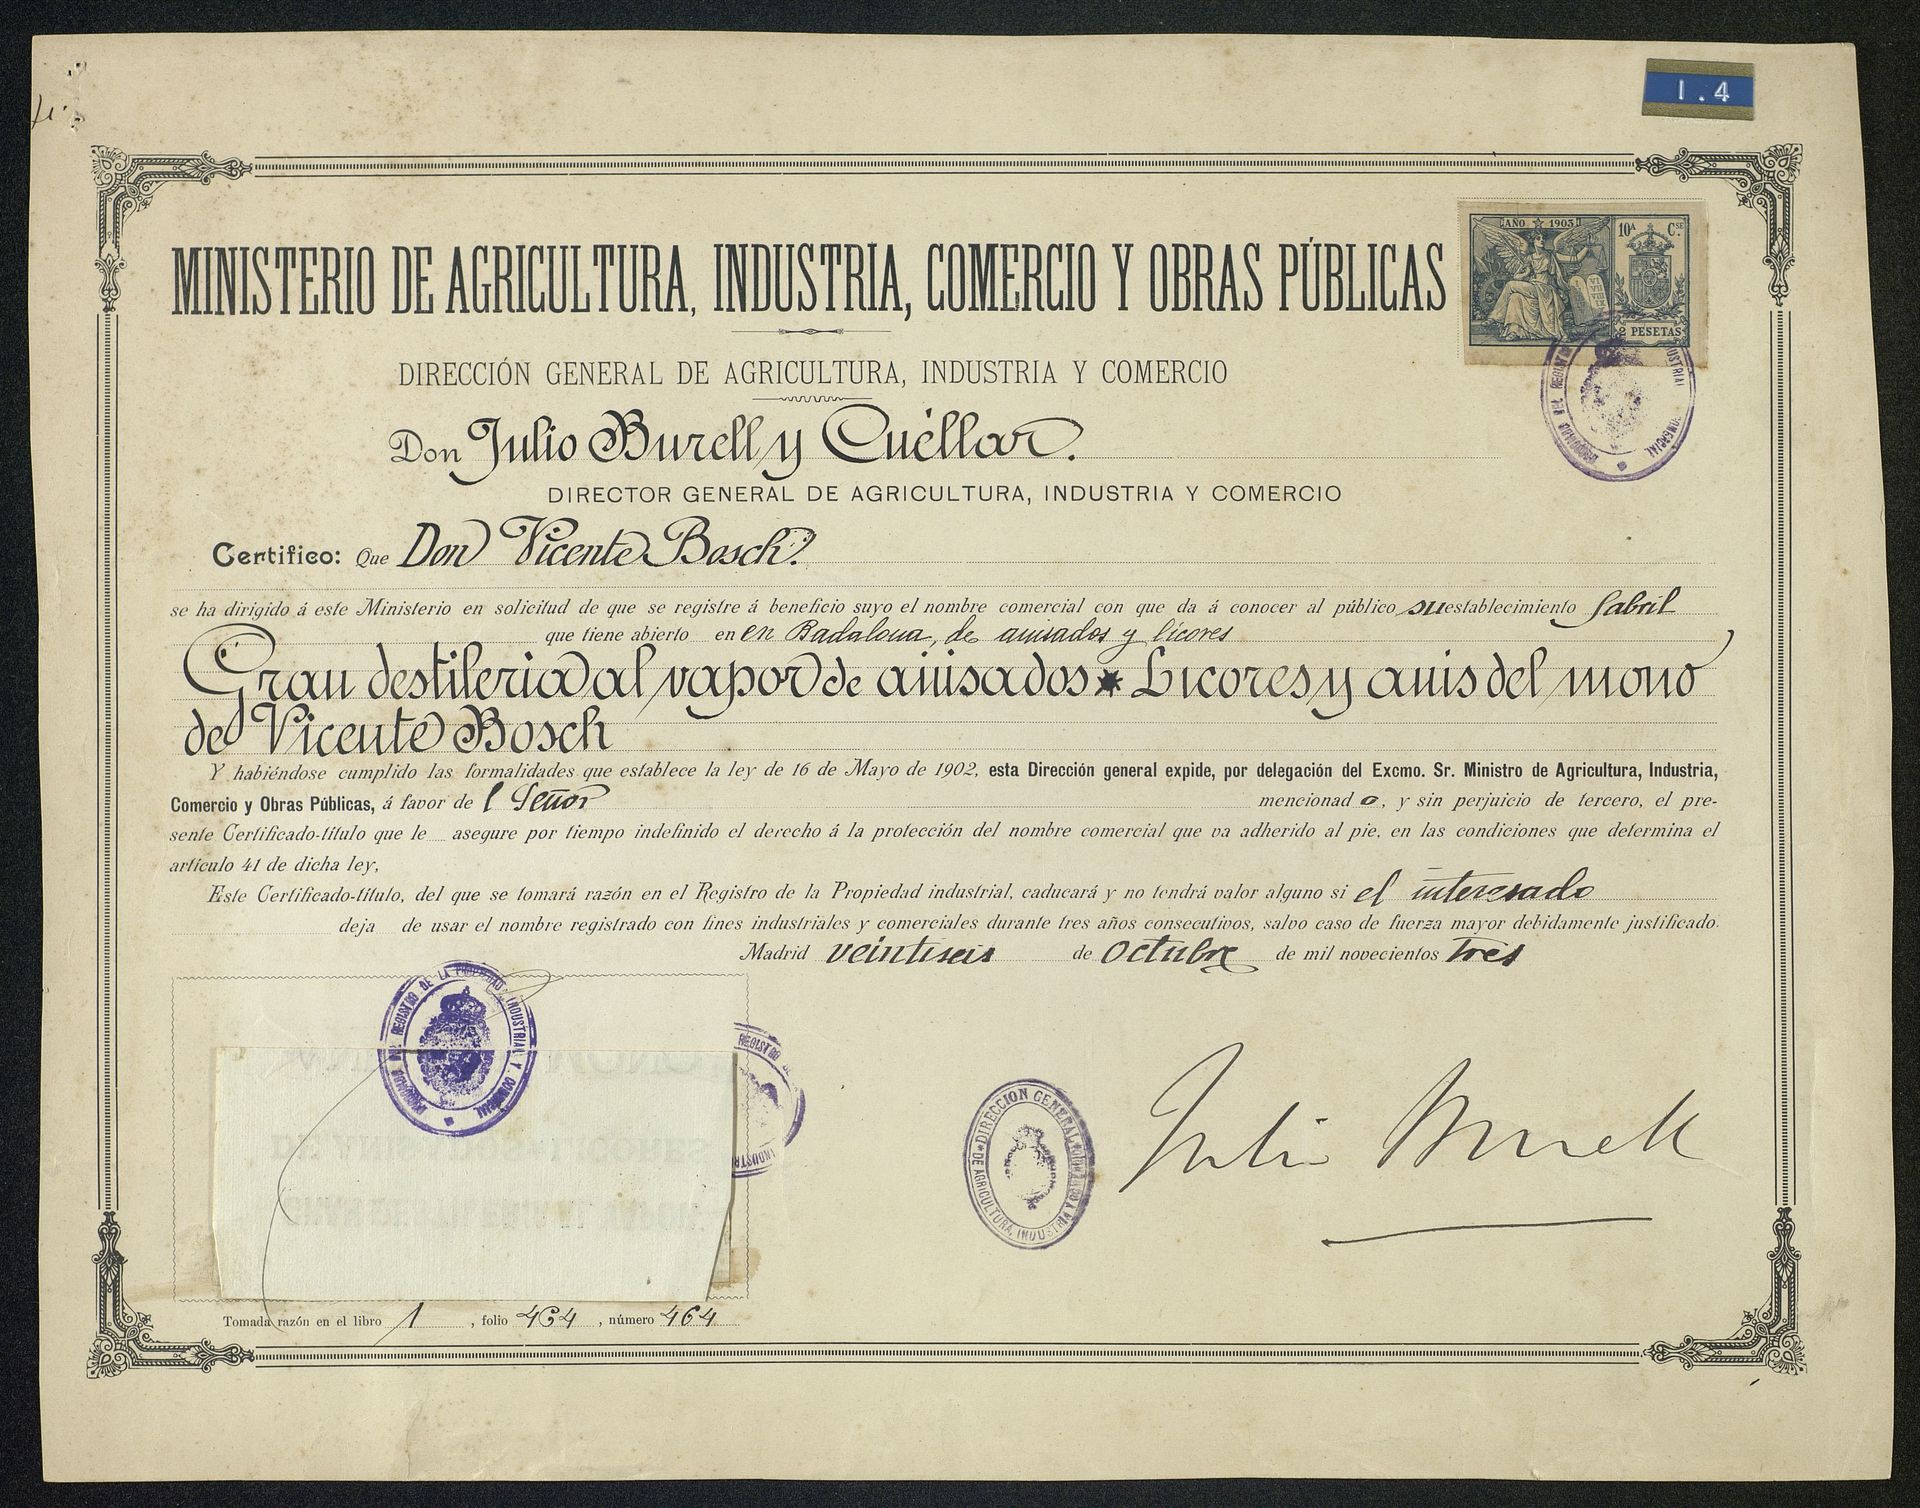 1.4
AÑO 1903
10A Cse
2 PESETAS
MINISTERIO DE AGRICULTURA, INDUSTRIA, COMERCIO Y OBRAS PÚBLICAS
DIRECCIÓN GENERAL DE AGRICULTURA, INDUSTRIA Y COMERCIO
Don Julio Burell y Cuéllar.
DIRECTOR GENERAL DE AGRICULTURA, INDUSTRIA Y COMERCIO
Certifico: Que Don Vicente Bosch.
se ha dirigido á este Ministerio en solicitud de que se registre á beneficio suyo el nombre comercial con que da á conocer al público su establecimiento fabril
que tiene abierto en en Badalona, de anisados y licores
Gran destileria al vapor de anisados * Licores y anis del mono
de Vicente Bosch
Y habiéndose cumplido las formalidades que establece la ley de 16 de Mayo de 1902, esta Dirección general expide, por delegación del Excmo. Sr. Ministro de Agricultura, Industria,
Comercio y Obras Públicas, á favor de l Señor mencionado, y sin perjuicio de tercero, el pre-
sente Certificado-título que le asegure por tiempo indefinido el derecho á la protección del nombre comercial que va adherido al pie, en las condiciones que determina el
artículo 41 de dicha ley,
Este Certificado-título, del que se tomará razón en el Registro de la Propiedad industrial, caducará y no tendrá valor alguno si el interesado
deja de usar el nombre registrado con fines industriales y comerciales durante tres años consecutivos, salvo caso de fuerza mayor debidamente justificado.
Madrid veintiseis de Octubre de mil novecientos tres
REGISTRO DE LA PROPIEDAD INDUSTRIAL Y COMERCIAL
DIRECCION GENERAL
DE AGRICULTURA, INDUSTRIA
Julio Burell
Tomada razón en el libro 1, folio 464, número 464